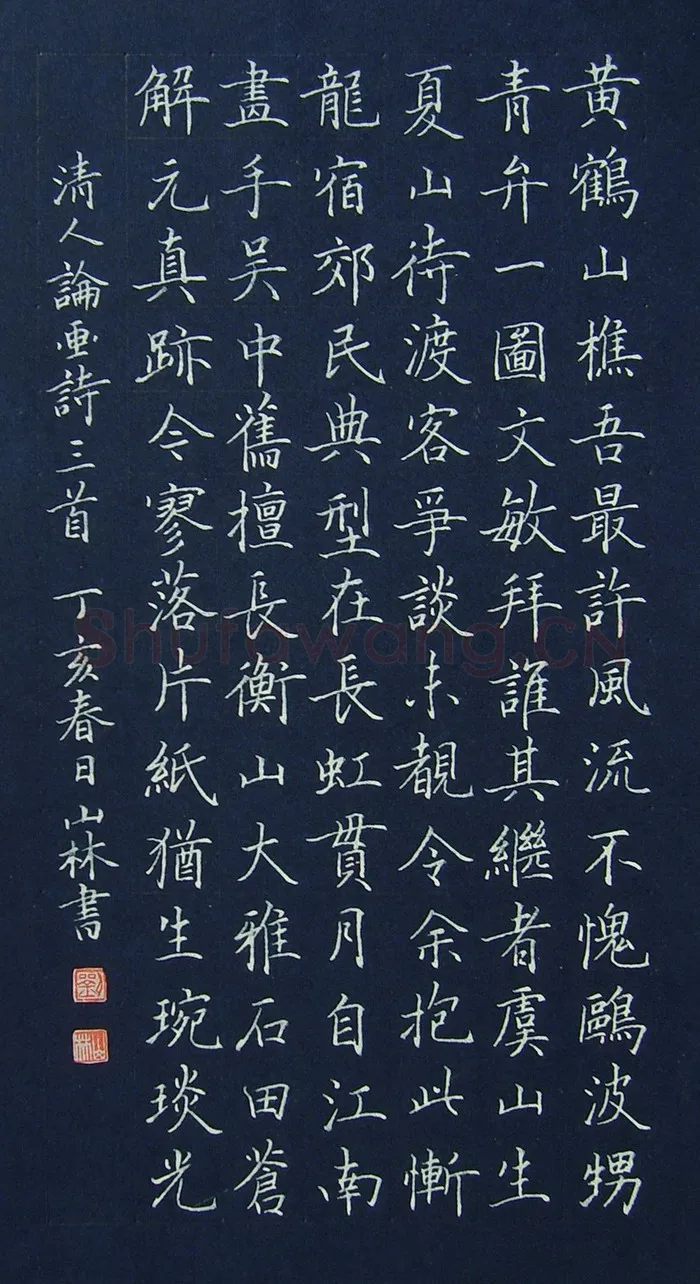 黄鶴山樵吾最許風流不愧鷗波甥
青弁一圖文敏拜誰其繼者虞山生
夏山待渡客爭談未覩令余抱此慚
龍宿郊民典型在長虹貫月自江南
畫手吴中舊擅長衡山大雅石田蒼
解元真跡今寥落片紙猶生琬琰光
清人論画詩三首 丁亥春日山林書
劉
山林
Shufawang.CN